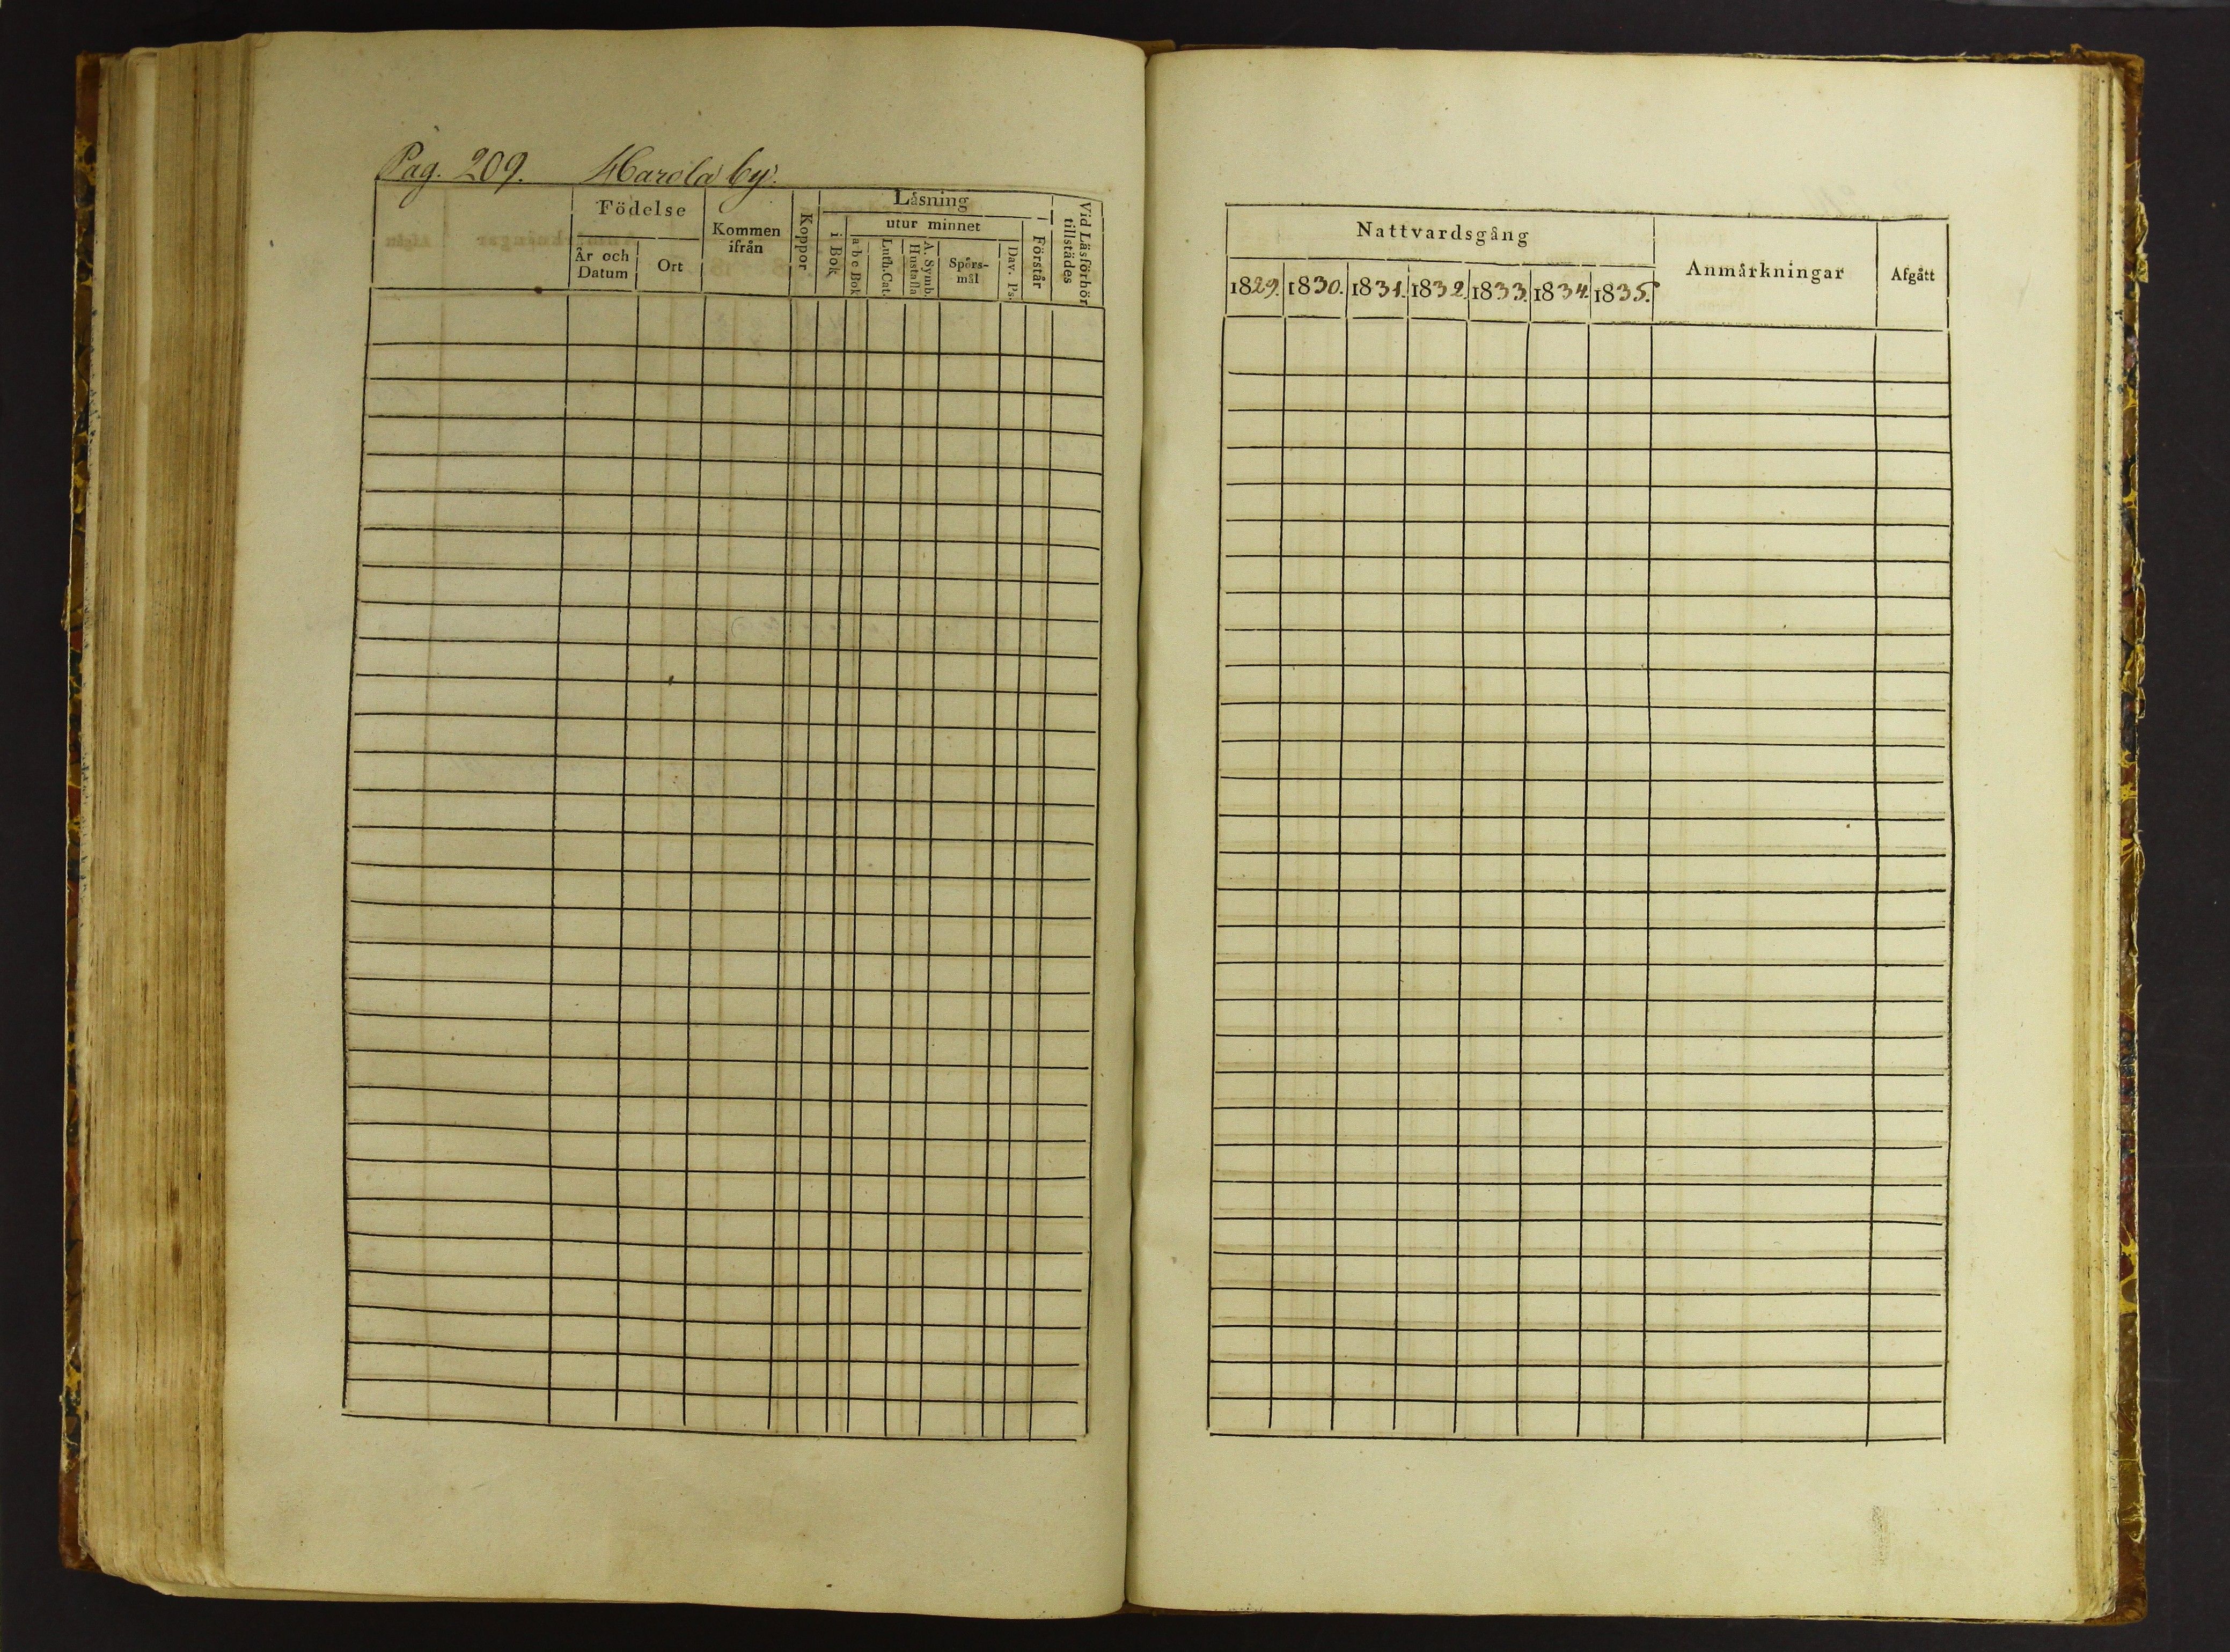 Pag. 209. Harola by.
Födelse
År och Datum
Ort
Kommen ifrån
Koppor
Läsning
i Bok
utur minnet
a b c Bok
Luth. Cat.
A. Symb. Hustafla
Spörs-
mål
Dav. Ps.
Förstår
Vid Läsförhör tillstädes
Nattvardsgång
1829. 1830. 1831. 1832. 1833. 1834. 1835.
Anmärkningar
Afgått